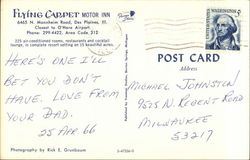 FLYING CARPET MOTOR INN
6465 N. Mannheim Road, Des Plaines, Ill.
Closest to O'Hare Airport.
Phone: 299-4422, Area Code 312
225 air-conditioned rooms, restaurants and cocktail
lounge, in complete resort setting on 15 beautiful acres.
HERE'S ONE I'LL
BET YOU DON'T
HAVE. LOVE FROM
YOUR DAD.
25 APR 66
Photography by Rick E. Grunbaum
WASHINGTON
POST CARD
Address
MICHAEL JOHNSTON
9515 N. REGENT ROAD
MILWAUKEE
53217